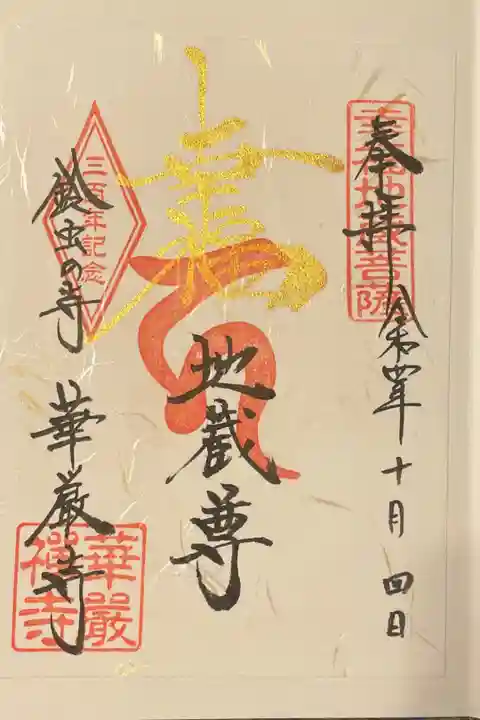 奉拝 令和四年十月四日
幸福地蔵菩薩
地蔵尊
三百年記念
鈴虫の寺 華厳寺
華嚴
禪寺